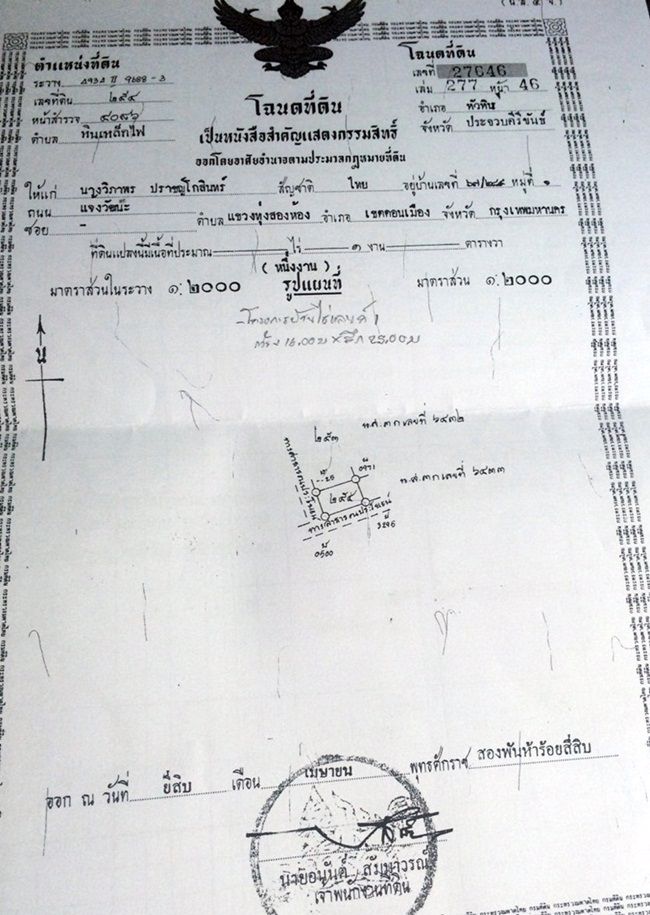 (น.ส. ๔ จ.)
ตำแหน่งที่ดิน
ระวาง
เลขที่ดิน ๒๕๔
หน้าสำรวจ ๔๐๙๖
ตำบล หินเหล็กไฟ
โฉนดที่ดิน
เลขที่ 27646
เล่ม 277 หน้า 46
อำเภอ หัวหิน
จังหวัด ประจวบคีรีขันธ์
โฉนดที่ดิน
เป็นหนังสือสำคัญแสดงกรรมสิทธิ์
ออกโดยอาศัยอำนาจตามประมวลกฎหมายที่ดิน
ให้แก่ นางวิภาพร ปราชญ์โกสินทร์ สัญชาติ ไทย อยู่บ้านเลขที่ ๖๗/๒๘๕ หมู่ที่ ๑
ถนน แจงวัฒนะ
ซอย - ตำบล แขวงทุ่งสองห้อง อำเภอ เขตดอนเมือง จังหวัด กรุงเทพมหานคร
ที่ดินแปลงนี้มีเนื้อที่ประมาณ ไร่ ๑ งาน ตารางวา
( หนึ่งงาน )
มาตราส่วนในระวาง ๑:๒๐๐๐ รูปแผนที่ มาตราส่วน ๑:๒๐๐๐
กว้าง 16.00 ม × ลึก 25.00 ม
น
น.ส.๓ ก เลขที่ ๖๔๓๒
๒๕๓
น.ส.๓ ก เลขที่ ๖๔๓๓
ทางสาธารณประโยชน์
๒๕๔
ทางสาธารณประโยชน์
3296
0500
ออก ณ วันที่ ยี่สิบ เดือน เมษายน พุทธศักราช สองพันห้าร้อยสี่สิบ
เจ้าพนักงานที่ดิน